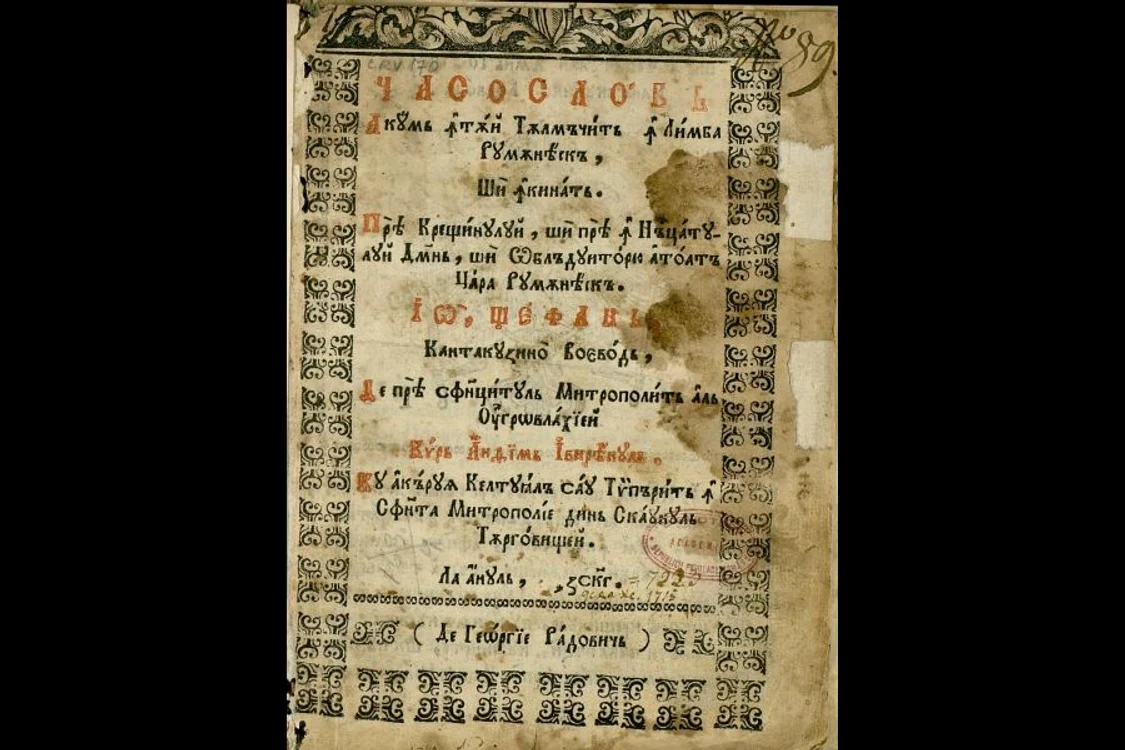 № 89.
CRV 170
ЧАСОСЛО́ВЬ
Акꙋмь ꙟ҆тѫ́й Тѫлмъчи́ть ꙟ҆ Ли́мба
Рꙋмѫнѣ́скъ,
Ши́ ꙟ҆кина́ть.
Прѣ́ Креџи́нꙋлꙋй, ши́ прѣ́ ꙟ҆ Нъца́тꙋ-
лꙋй Дм҃нь, ши́ Ѡблъдꙋито́рю а҆то́атъ
Ца́ра Рꙋмѫнѣ́скъ.
І҆Ѡ҃, ЩЕ́ФАНЬ,
Кантакꙋзино́ Воєво́дь,
Де прѣ́ сфи҃нци́тꙋль Митрополи́ть а҆ль
Оу҆грѡвла́хїей
Кѵ́рь А҆нѳі́мь І҆вирѣ́нꙋль.
Кꙋ а҆ка́рꙋꙗ Келтꙋꙗ́лъ са́ꙋ Тѷпъри́ть ꙟ҆
Сфн҃та Митропо́лїе динь Ска́ꙋнꙋль
Тѫрго́вищей.
Ла а҆́нꙋль, ҂зскг. = 7223
дела хс. 1715
( Де Геѡ́ргїе Ра́довичь )